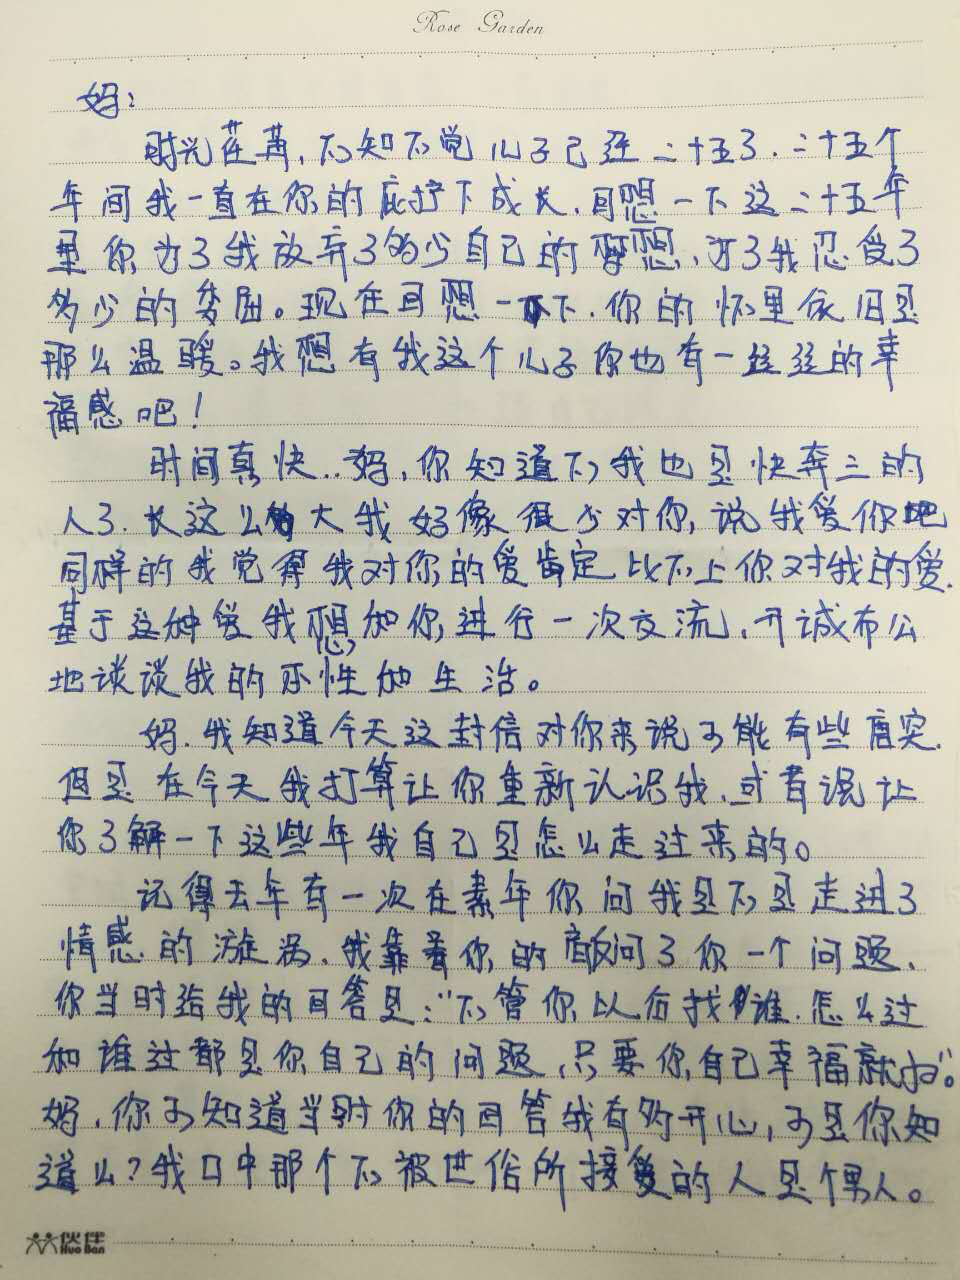 Rose Garden
妈：
时光荏苒，不知不觉儿子已经二十五了．二十五个
年间我一直在你的庇护下成长．回想一下这二十五年
里你为了我放弃了多少自己的梦想，为了我忍受了
多少的委屈。现在回想一下．你的怀里依旧是
那么温暖。我想有我这个儿子你也有一丝丝的幸
福感吧！
时间真快..妈，你知道不，我也是快奔三的
人了．长这么大我好像很少对你，说我爱你吧
同样的我觉得我对你的爱肯定比不上你对我的爱．
基于这种爱我想和你，进行一次交流，开诚布公
地谈谈我的不性和生活。
妈．我知道今天这封信对你来说可能有些唐突．
但是在今天我打算让你重新认识我．或者说让
你了解一下这些年我自己是怎么走过来的。
记得去年有一次在素年你问我是不是走进了
情感的漩涡．我靠着你的问了你一个问题．
你当时给我的回答是：“不管你以后找谁．怎么过
和谁过都是你自己的问题，只要你自己幸福就好”。
妈，你可知道当时你的回答我有多开心，可是你知
道么？我口中那个不被世俗所接受的人是个男人。
伙伴
HuoBan